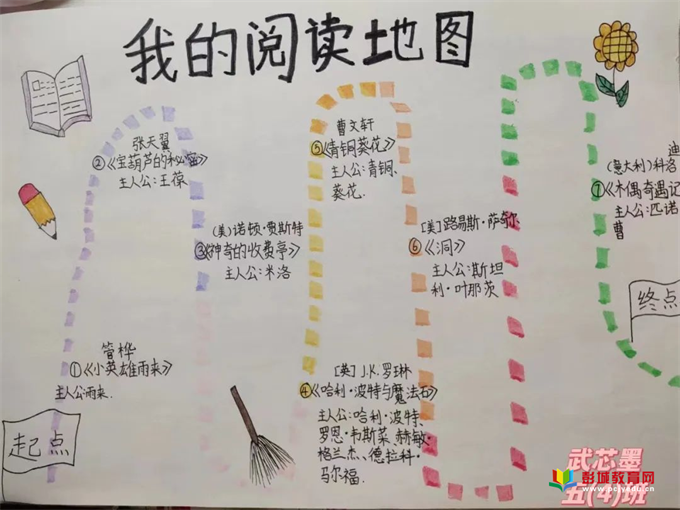 我的阅读地图
起点
管桦
①《小英雄雨来》
主人公:雨来.
张天翼
②《宝葫芦的秘密》
主人公:王葆.
(美)诺顿·贾斯特
③《神奇的收费亭》
主人公:米洛
[英] J.K.罗琳
④《哈利·波特与魔法石》
主人公:哈利·波特、
罗恩·韦斯莱、赫敏·
格兰杰、德拉科·
马尔福.
曹文轩
⑤《青铜葵花》
主人公:青铜、
葵花.
[美]路易斯·萨奇尔
⑥《洞》
主人公:斯坦
利·叶那茨
(意大利)科洛
迪
⑦《木偶奇遇记
主人公:匹诺
曹
终点
武芯墨
五(4)班
彭城教育网
www.pcjyedu.cn